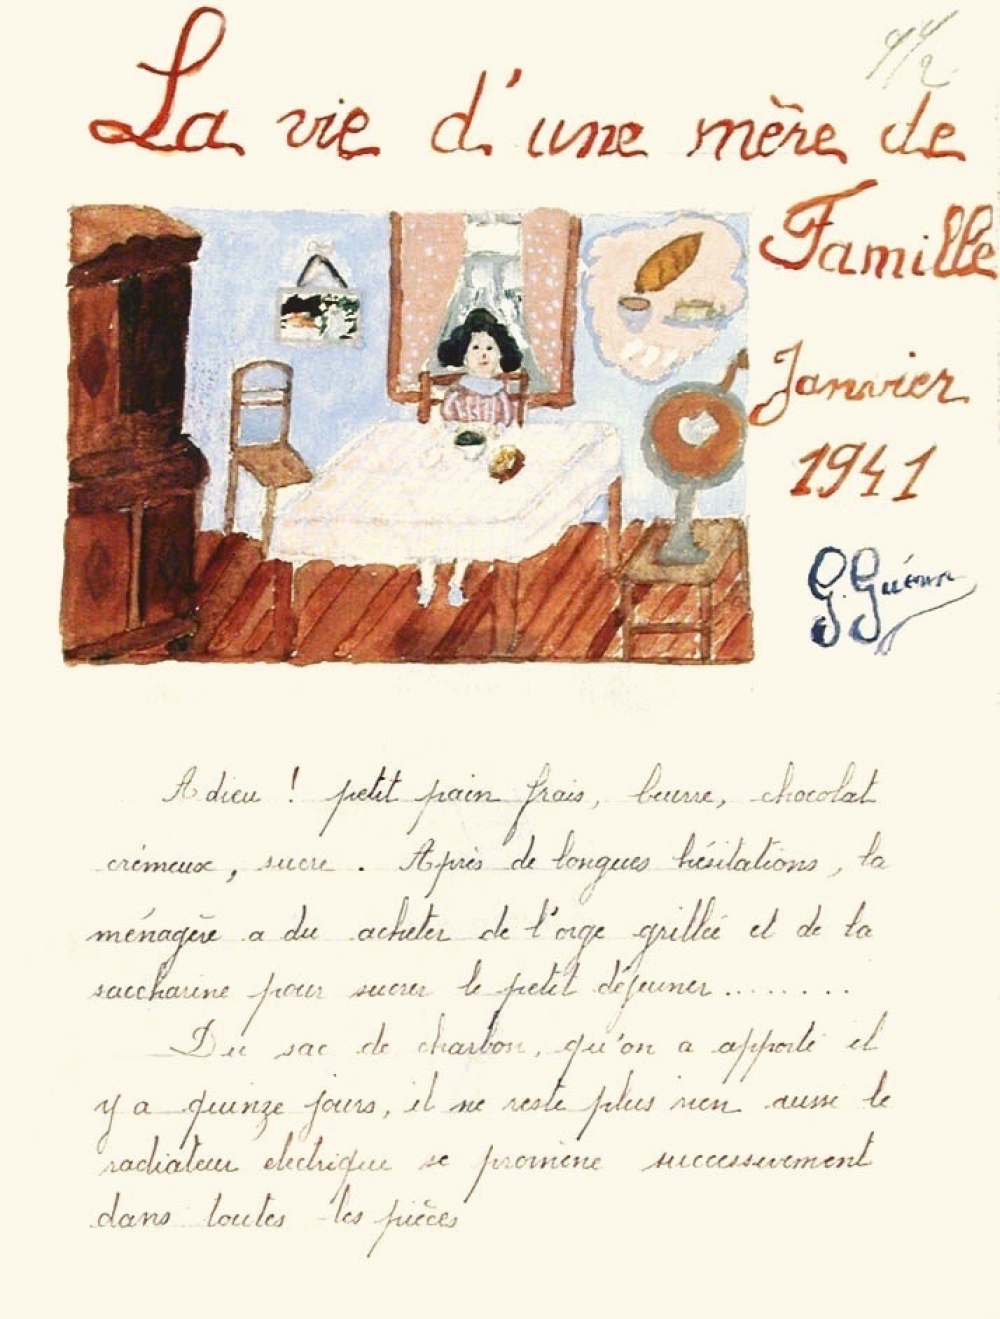 La vie d'une mère de
Famille
Janvier
1941
G. Guérin
Adieu ! petit pain frais, beurre, chocolat
crémeux, sucre. Après de longues hésitations, la
ménagère a du acheter de l'orge grillée et de la
saccharine pour sucrer le petit déjeuner........
Du sac de charbon, qu'on a apporté il
y a quinze jours, il ne reste plus rien aussi le
radiateur electrique se promène successivement
dans toutes les pièces